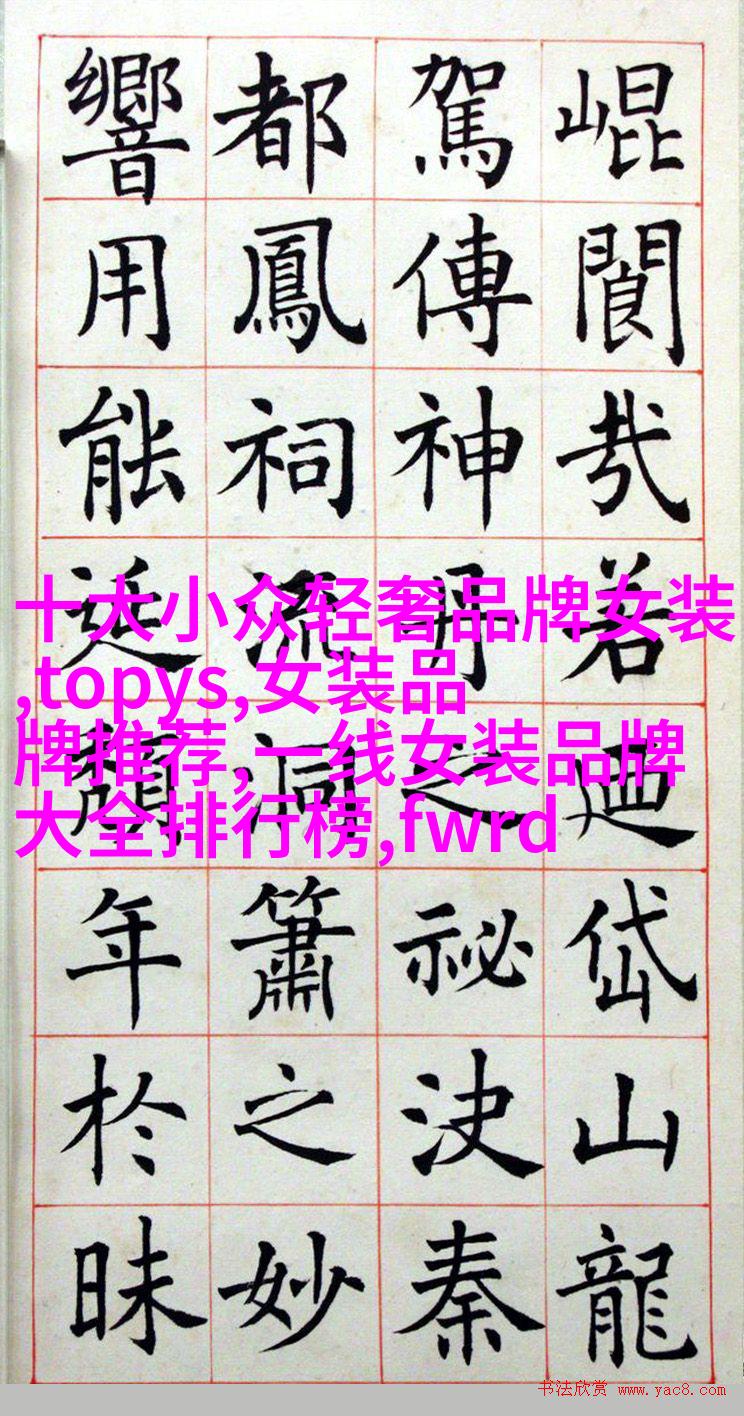 崐閬哉若迺岱山龍
駕傳神丹之祕決秦
都鳳祠流洞簫之妙
響用能延頹年於昧
十大小众轻奢品牌女装
,topys,女装品
牌推荐,一线女装品牌
大全排行榜,fwrd
书法欣赏 www.yac8.com